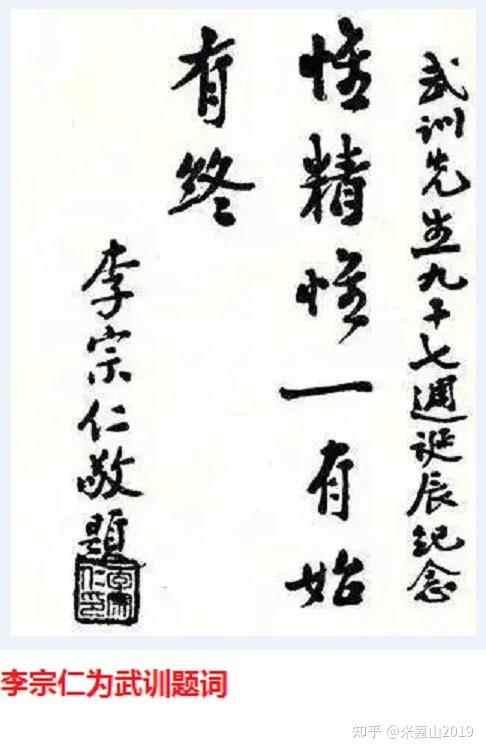 武训先生九十七週誕辰纪念
惟精惟一有始
有终
李宗仁敬题
李宗仁印
李宗仁为武训题词
知乎 @米嘉山2019